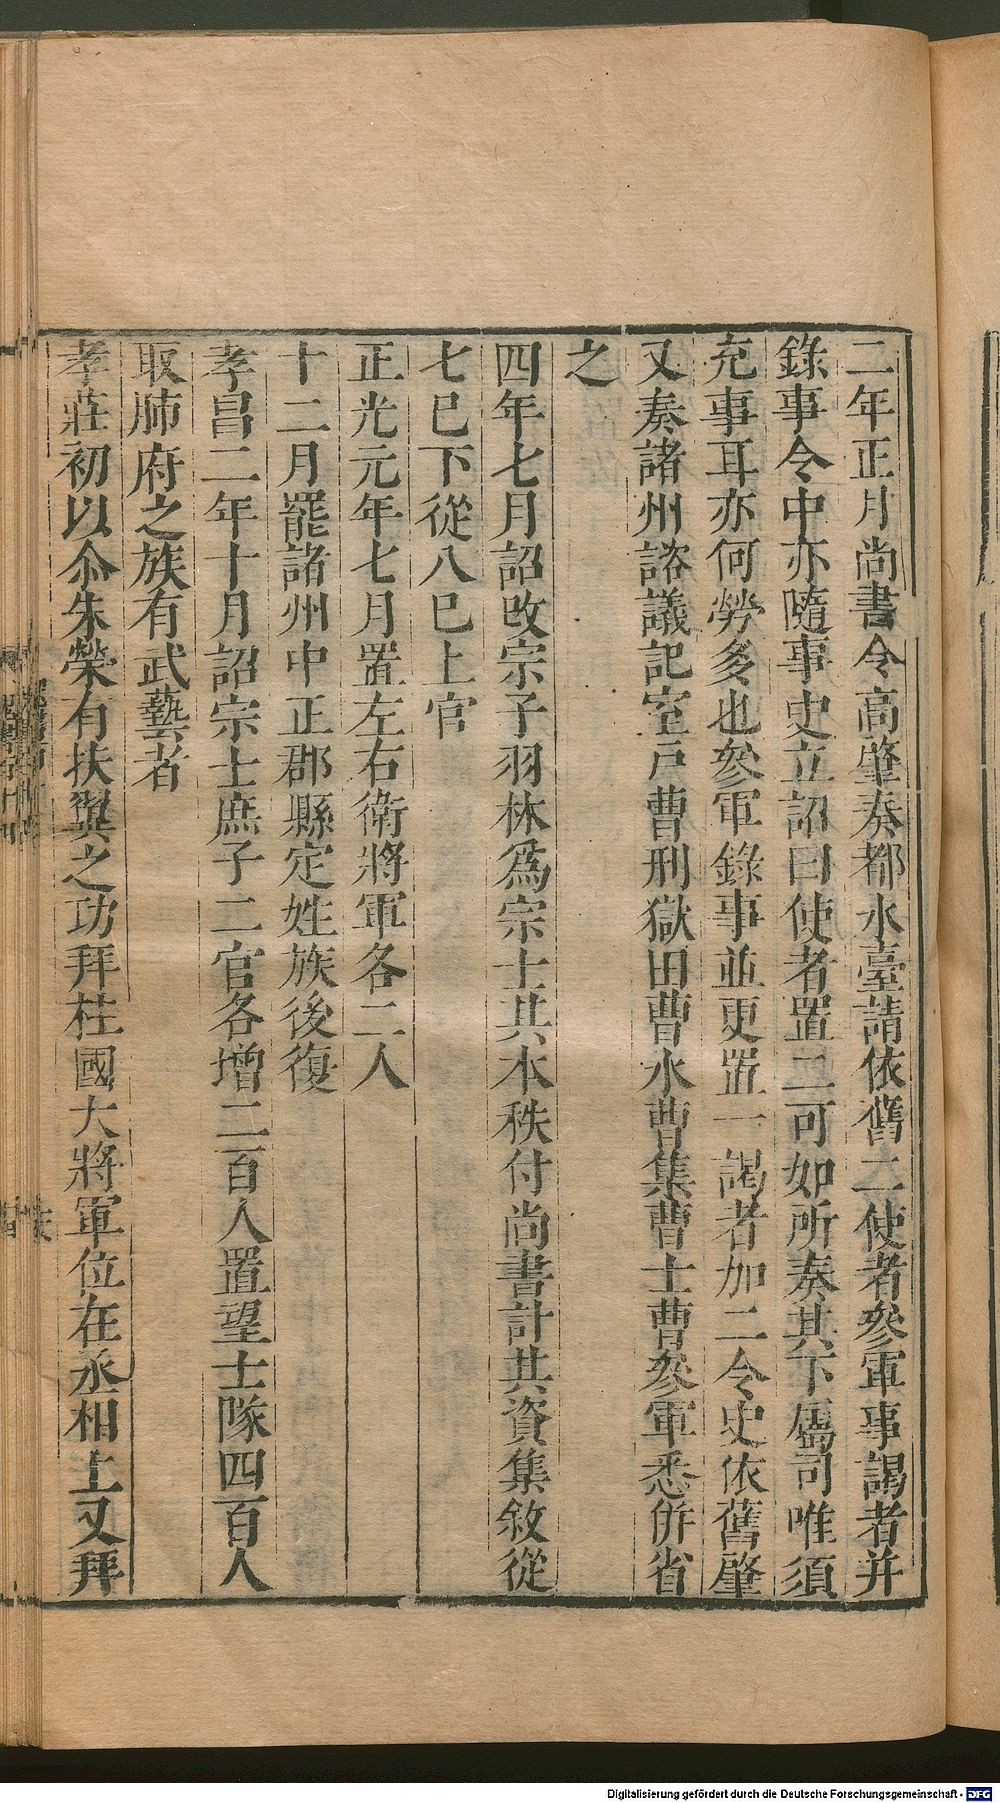 二年正月尚書令高肇奏都水臺請依舊二使者參軍事謁者并
錄事令中亦隨事史立詔曰使者置二可如所奏其下屬司唯須
充事耳亦何勞多也參軍錄事並更置一謁者加二令史依舊肇
又奏諸州諮議記室戶曹刑獄田曹水曹集曹士曹參軍悉併省
之
四年七月詔改宗子羽林爲宗士其本秩付尚書計其資集敘從
七已下從八已上官
正光元年七月置左右衛將軍各二人
十二月罷諸州中正郡縣定姓族後復
孝昌二年十月詔宗士庶子二官各增二百人置望士隊四百人
取肺府之族有武藝者
孝莊初以尒朱榮有扶翼之功拜柱國大將軍位在丞相上又拜
Digitalisierung gefördert durch die Deutsche Forschungsgemeinschaft - DFG